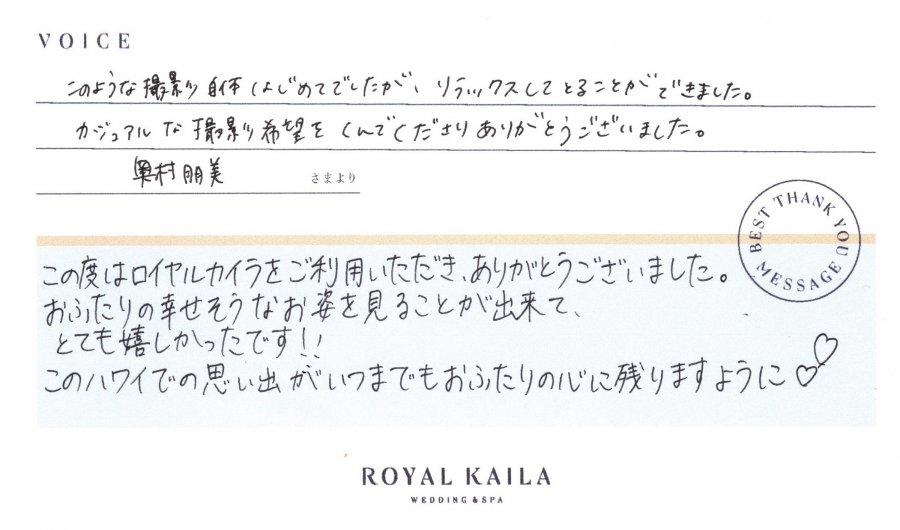 VOICE
このような撮影自体はじめてでしたが、リラックスしてとることができました。
カジュアルな撮影希望をくんでくださりありがとうございました。
奥村朋美 さまより
BEST THANK YOU MESSAGE
この度はロイヤルカイラをご利用いただき、ありがとうございました。
おふたりの幸せそうなお姿を見ることが出来て、
とても嬉しかったです!!
このハワイでの思い出がいつまでもおふたりの心に残りますように♡♡
ROYAL KAILA
WEDDING & SPA